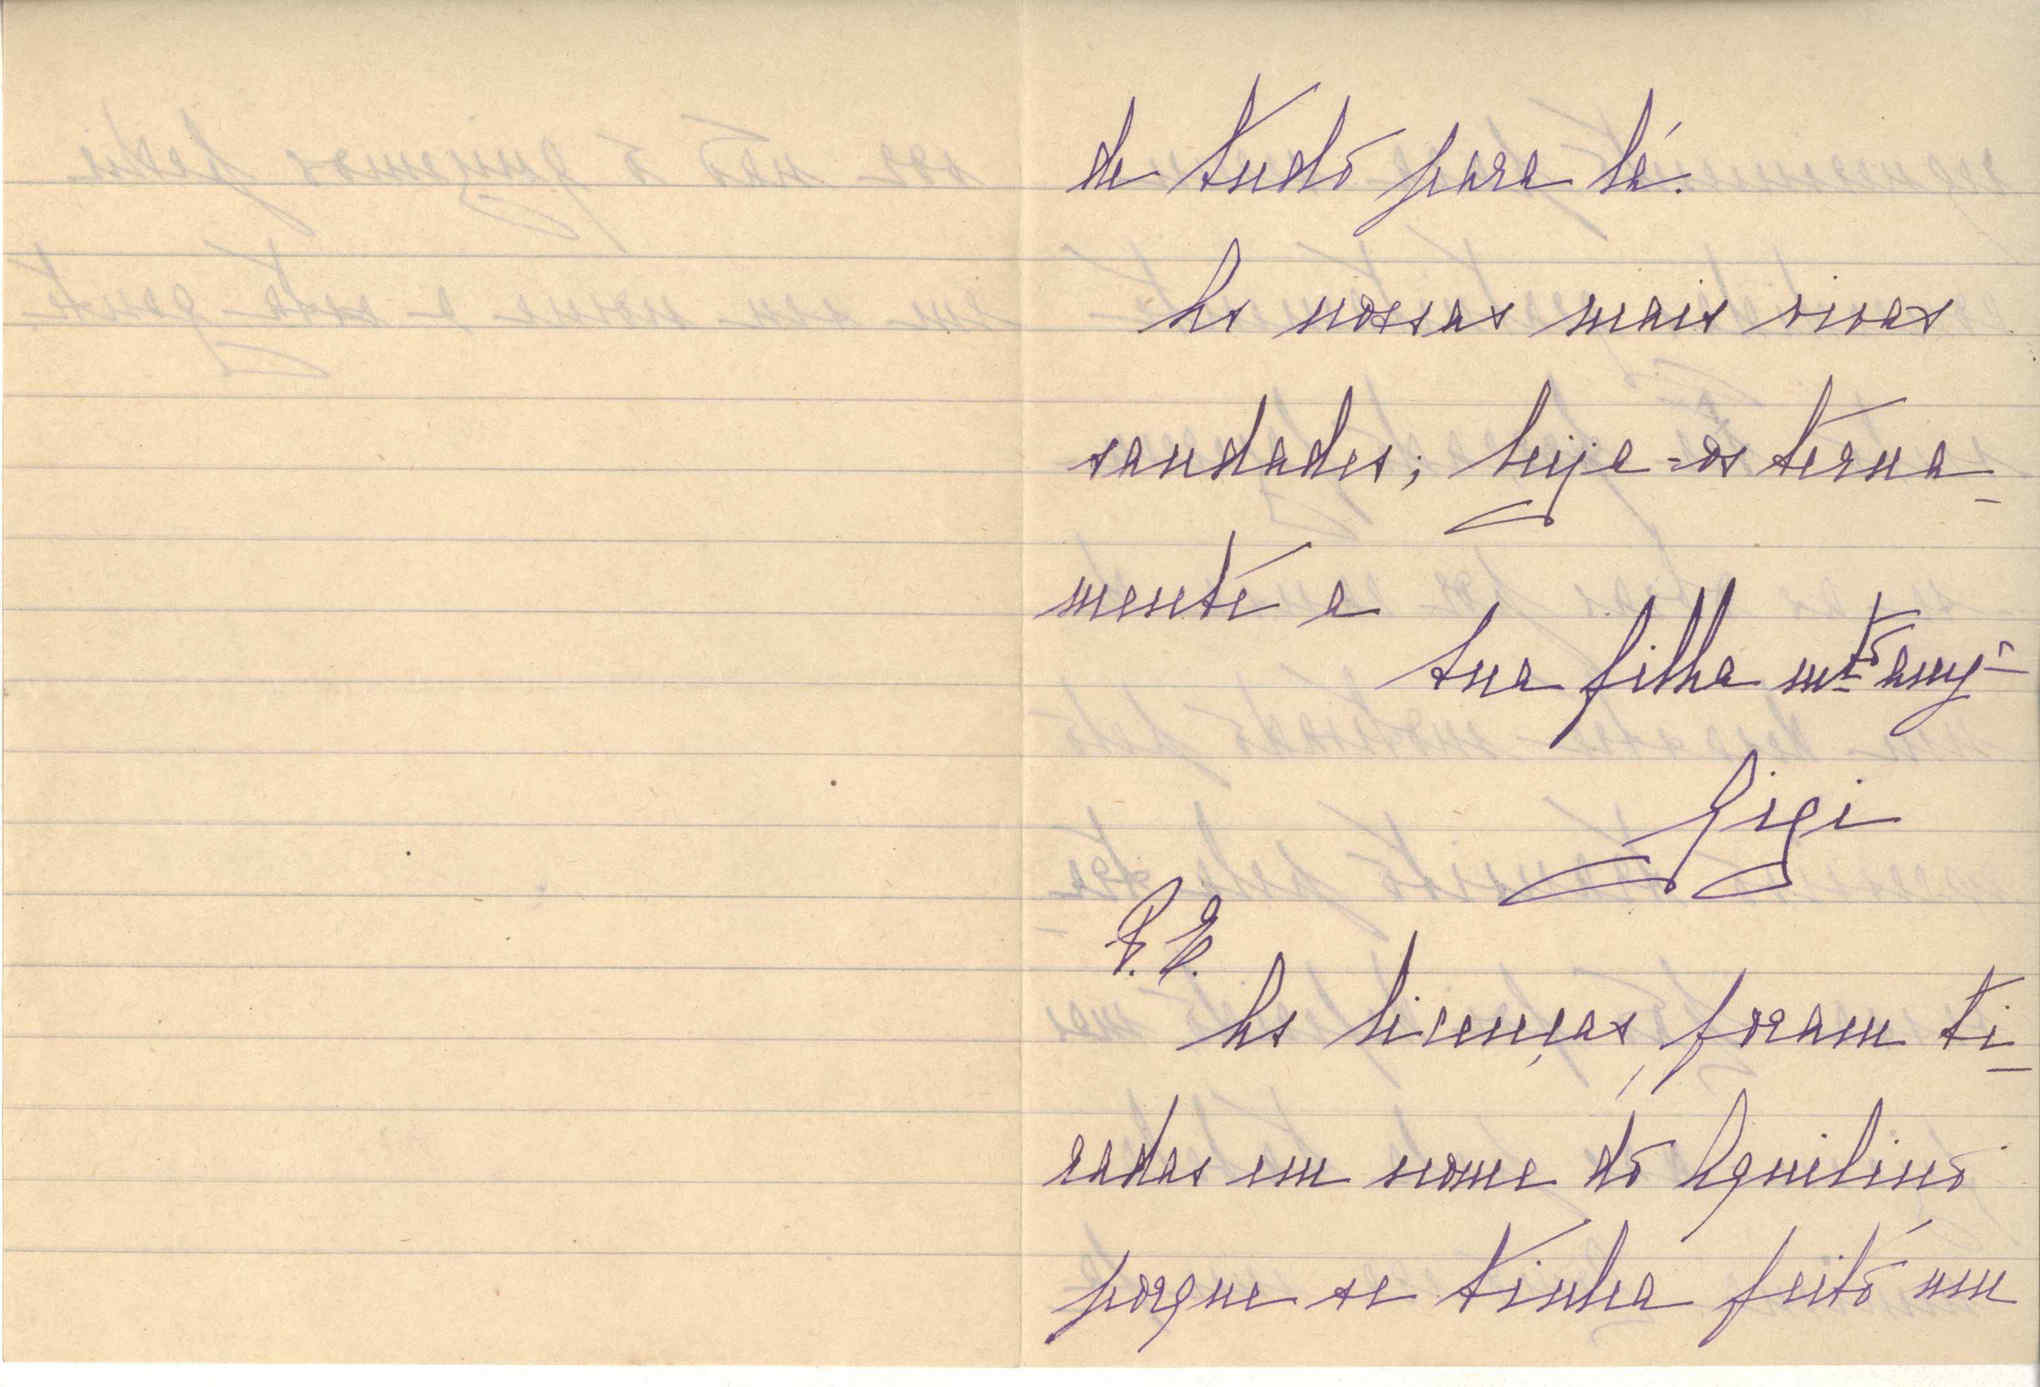 de tudo para lá.
As nossas mais vivas
saudades; beija-os terna-
mente a
tua filha mtº amgª
Gigi
P.E.
As licenças, foram ti-
radas em nome do Aquilino
porque se tinha feito um